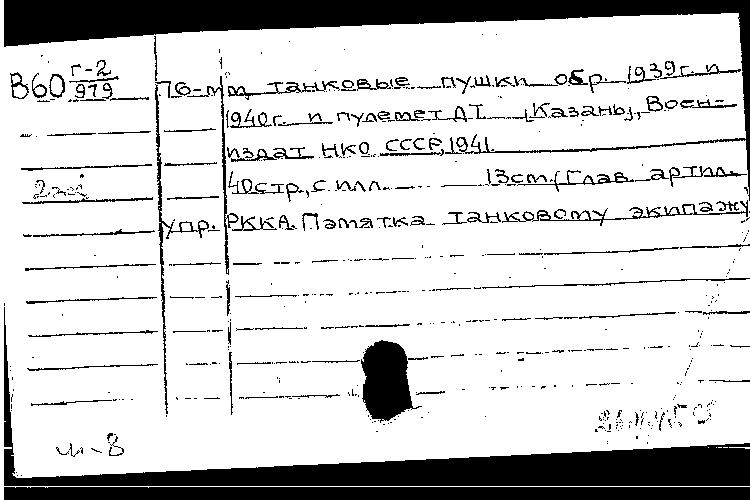 В60 Г-2/979 76-мм танковые пушки обр. 1939г. и
1940г. и пулемет ДТ. [Казань], Воен-
издат НКО СССР, 1941.
2 экз
40стр., с илл. 13см. (Глав. артил.
упр. РККА. Памятка танковому экипажу)
и-8